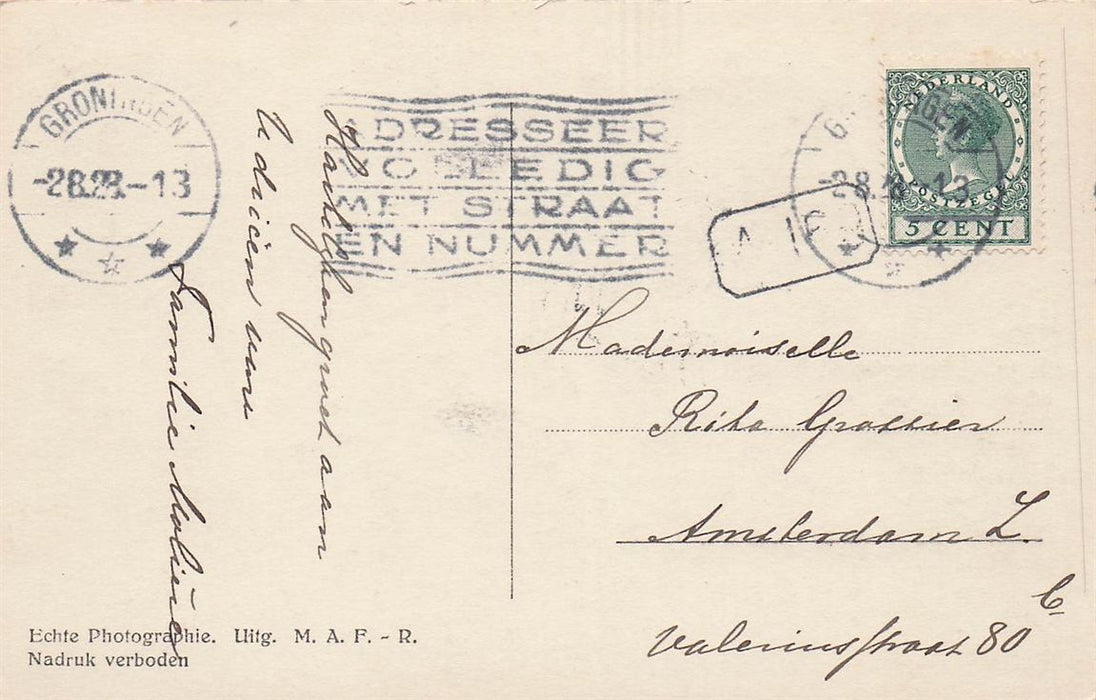 GRONINGEN
-2.8.28.-13
ADRESSEER
VOLLEDIG
MET STRAAT
EN NUMMER
GRONINGEN
-2.8.28.-13
NEDERLAND
POSTZEGEL
5 CENT
A
Hartelijken groet aan
U driëen van
Familie
Mademoiselle
Rita Grassier
Amsterdam Z.
Valeriusstraat 80
Echte Photographie. Uitg. M. A. F. - R.
Nadruk verboden